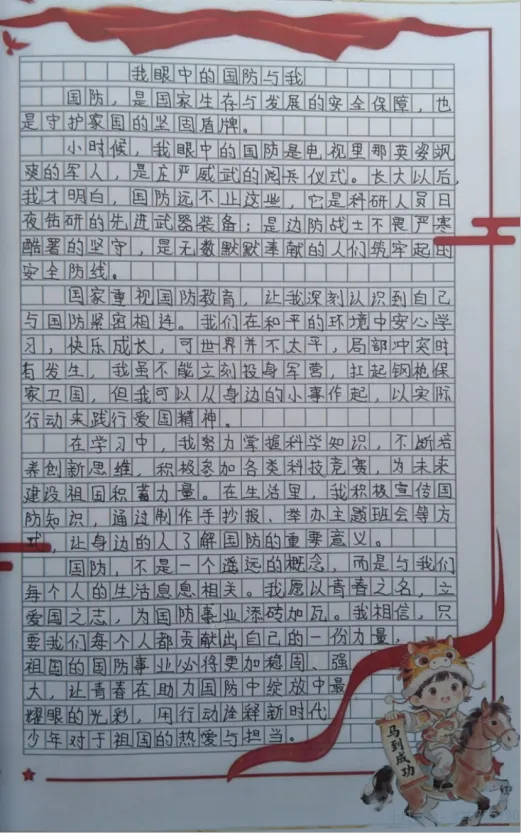 我眼中的国防与我
国防，是国家生存与发展的安全保障，也
是守护家国的坚固盾牌。
小时候，我眼中的国防是电视里那英姿飒
爽的军人，是庄严威武的阅兵仪式。长大以后，
我才明白，国防远不止这些，它是科研人员日
夜钻研的先进武器装备；是边防战士不畏严寒
酷署的坚守，是无数默默奉献的人们筑牢起的
安全防线。
国家重视国防教育，让我深刻认识到自己
与国防紧密相连。我们在和平的环境中安心学
习，快乐成长，可世界并不太平，局部冲突时
有发生，我虽不能立刻投身军营，扛起钢枪保
家卫国，但我可以从身边的小事作起，以实际
行动来践行爱国精神。
在学习中，我努力掌握科学知识，不断培
养创新思维，积极参加各类科技竞赛，为未来
建设祖国积蓄力量。在生活里，我积极宣传国
防知识，通过制作手抄报、举办主题班会等方
式，让身边的人了解国防的重要意义。
国防，不是一个遥远的概念，而是与我们
每个人的生活息息相关。我愿以青春之名，立
爱国之志，为国防事业添砖加瓦。我相信，只
要我们每个人都贡献出自己的一份力量，
祖国的国防事业必将更加稳固、强
大，让青春在助力国防中绽放中最
耀眼的光彩，用行动诠释新时代
少年对于祖国的热爱与担当。
马到成功